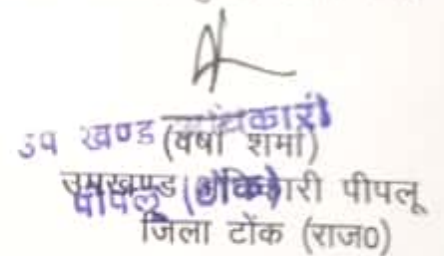 उप खण्ड अधिकारी
(वर्षा शर्मा)
उपखण्ड अधिकारी पीपलू
पीपलू (टोंक)
जिला टोंक (राज0)